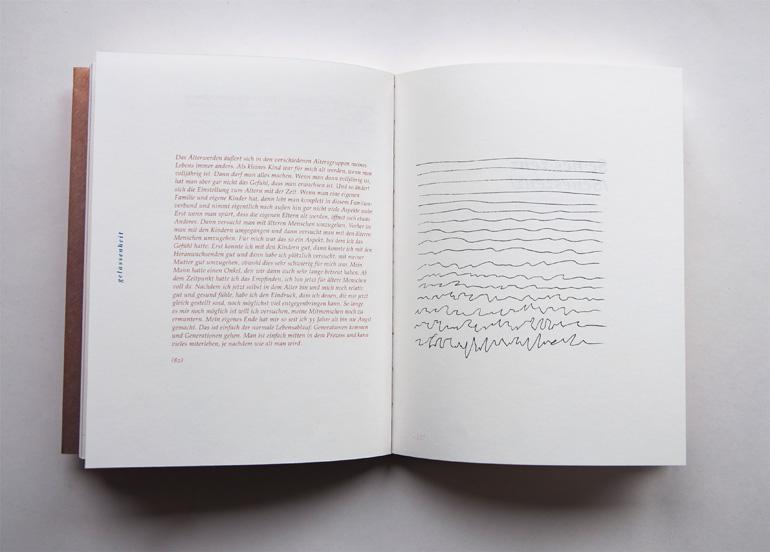 gelassenheit
Das Älterwerden äußert sich in den verschiedenen Altersgruppen meines
Lebens immer anders. Als kleines Kind war für mich alt werden, wenn man
volljährig ist. Dann darf man alles machen. Wenn man dann volljährig ist,
hat man aber gar nicht das Gefühl, dass man erwachsen ist. Und so ändert
sich die Einstellung zum Altern mit der Zeit. Wenn man eine eigenen
Familie und eigene Kinder hat, dann lebt man komplett in diesem Familien-
verbund und nimmt eigentlich nach außen hin gar nicht viele Aspekte wahr.
Erst wenn man spürt, dass die eigenen Eltern alt werden, öffnet sich etwas
Anderes. Dann versucht man mit älteren Menschen umzugehen. Vorher ist
man mit den Kindern umgegangen und dann versucht man mit den älteren
Menschen umzugehen. Für mich war das so ein Aspekt, bei dem ich das
Gefühl hatte: Erst konnte ich mit den Kindern gut, dann konnte ich mit den
Heranwachsenden gut und dann habe ich plötzlich versucht, mit meiner
Mutter gut umzugehen, obwohl dies sehr schwierig für mich war. Mein
Mann hatte einen Onkel, den wir dann auch sehr lange betreut haben. Ab
dem Zeitpunkt hatte ich das Empfinden, ich bin jetzt für ältere Menschen
voll da. Nachdem ich jetzt selbst in dem Alter bin und mich noch relativ
gut und gesund fühle, habe ich den Eindruck, dass ich denen, die mir jetzt
gleich gestellt sind, noch möglichst viel entgegenbringen kann. So lange
es mir noch möglich ist will ich versuchen, meine Mitmenschen noch zu
ermuntern. Mein eigenes Ende hat mir so seit ich 35 Jahre alt bin nie Angst
gemacht. Das ist einfach der normale Lebensablauf. Generationen kommen
und Generationen gehen. Man ist einfach mitten in dem Prozess und kann
vieles miterleben, je nachdem wie alt man wird.
(82)